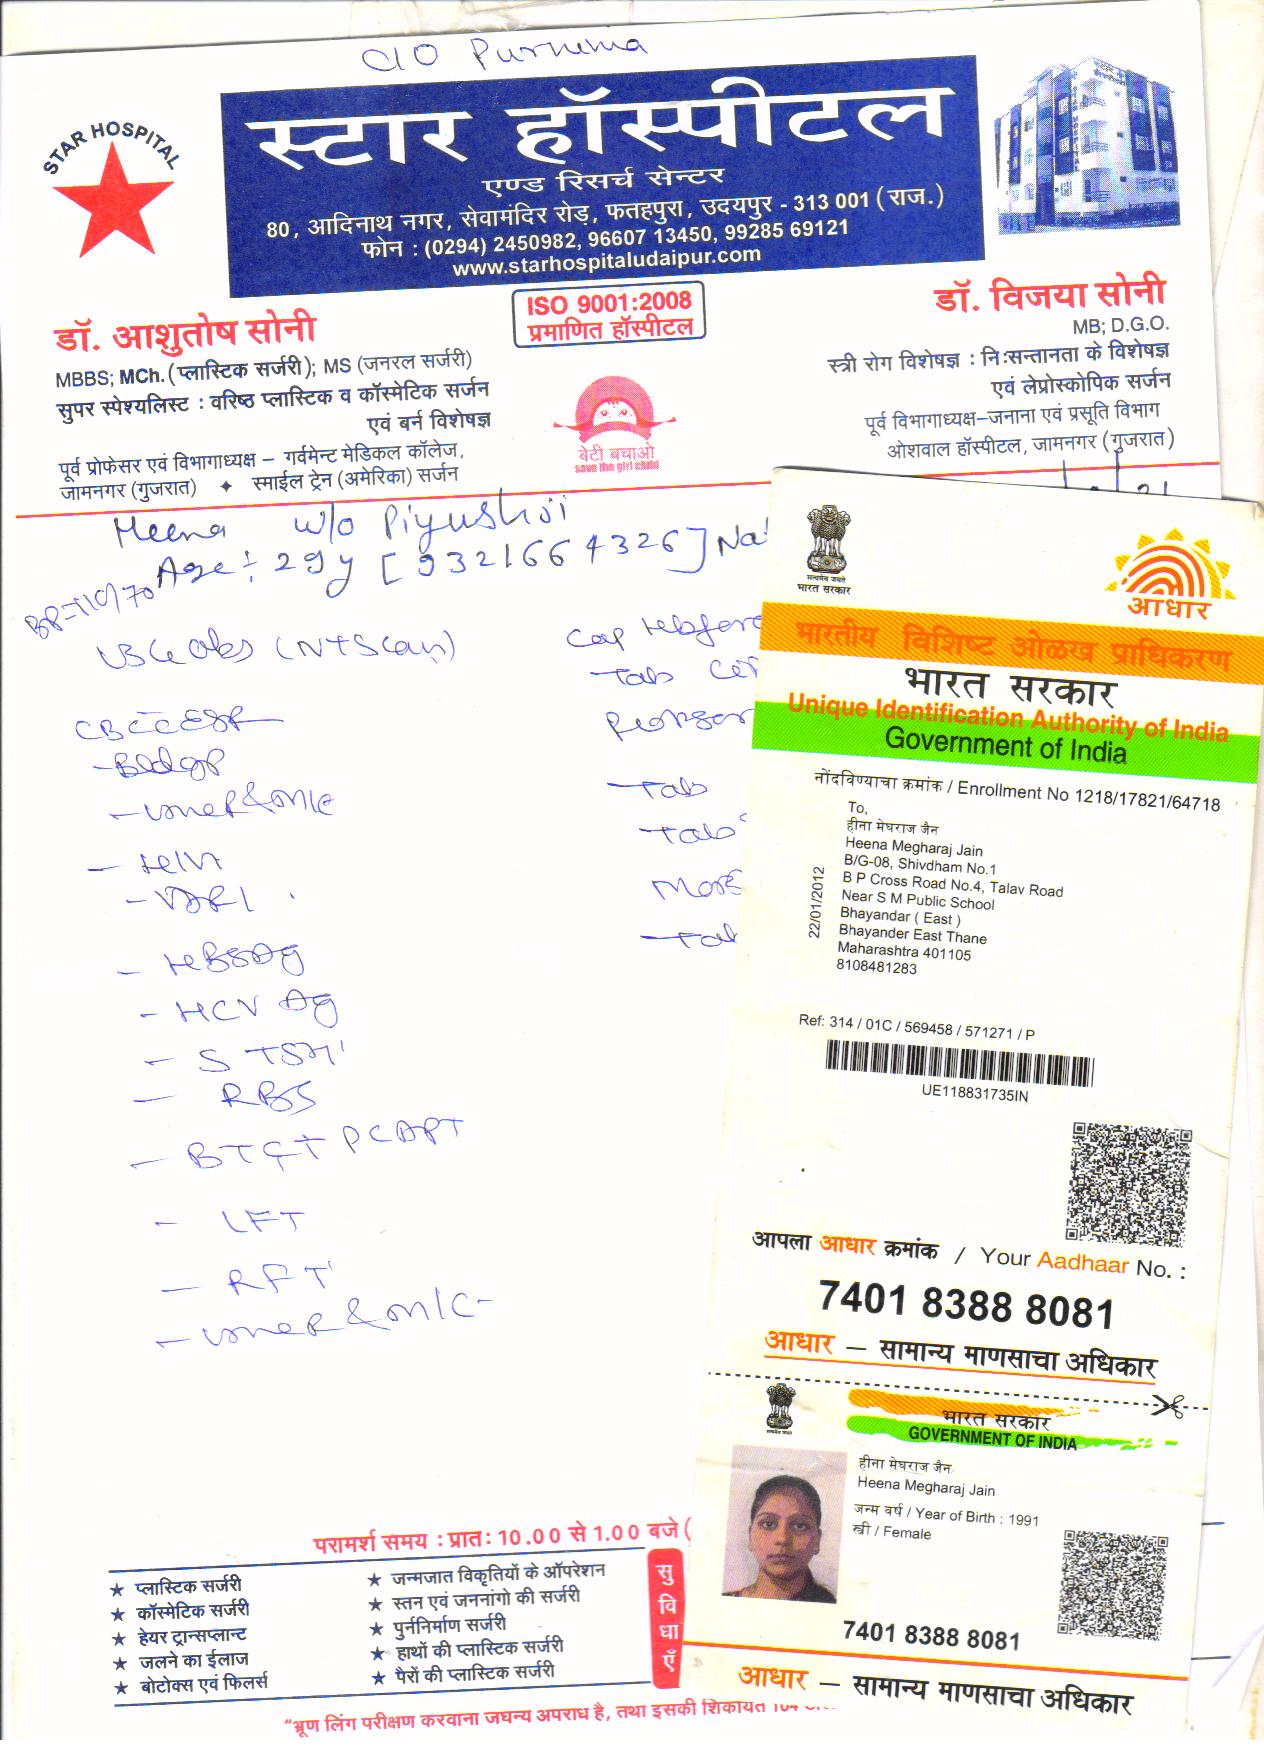 C/O Purnima
STAR HOSPITAL
स्टार हॉस्पीटल
एण्ड रिसर्च सेन्टर
80, आदिनाथ नगर, सेवामंदिर रोड़, फतहपुरा, उदयपुर - 313 001 (राज.)
फोन : (0294) 2450982, 96607 13450, 99285 69121
www.starhospitaludaipur.com
ISO 9001:2008
प्रमाणित हॉस्पीटल
डॉ. आशुतोष सोनी
MBBS; MCh. (प्लास्टिक सर्जरी); MS (जनरल सर्जरी)
सुपर स्पेश्यलिस्ट : वरिष्ठ प्लास्टिक व कॉस्मेटिक सर्जन
एवं बर्न विशेषज्ञ
पूर्व प्रोफेसर एवं विभागाध्यक्ष – गर्वमेन्ट मेडिकल कॉलेज,
जामनगर (गुजरात) ✦ स्माईल ट्रेन (अमेरिका) सर्जन
बेटी बचाओ
save the girl child
डॉ. विजया सोनी
MB; D.G.O.
स्त्री रोग विशेषज्ञ : निःसन्तानता के विशेषज्ञ
एवं लेप्रोस्कोपिक सर्जन
पूर्व विभागाध्यक्ष–जनाना एवं प्रसूति विभाग
ओशवाल हॉस्पीटल, जामनगर (गुजरात)
Heena w/o Piyushji
Age : 29y [9321664326]
BP-110/70
USG obs (NT Scan)
CBC ESR
- Bldgp
- urine R & M/C
- HIV
- VDRL
- HBSAg
- HCV Ag
- S TSH
- RBS
- BT CT PC APT
- LFT
- RFT
- urine R & M/C
Cap
Tab
Tab
Tab
Tab
परामर्श समय : प्रातः 10.00 से 1.00 बजे (
★ प्लास्टिक सर्जरी
★ कॉस्मेटिक सर्जरी
★ हेयर ट्रान्सप्लान्ट
★ जलने का ईलाज
★ बोटोक्स एवं फिलर्स
★ जन्मजात विकृतियों के ऑपरेशन
★ स्तन एवं जननांगो की सर्जरी
★ पुर्ननिर्माण सर्जरी
★ हाथों की प्लास्टिक सर्जरी
★ पैरों की प्लास्टिक सर्जरी
सुविधाएँ
“भ्रूण लिंग परीक्षण करवाना जघन्य अपराध है, तथा इसकी शिकायत 104
भारत सरकार
आधार
भारतीय विशिष्ट ओळख प्राधिकरण
भारत सरकार
Unique Identification Authority of India
Government of India
नोंदविण्याचा क्रमांक / Enrollment No 1218/17821/64718
To,
हीना मेघराज जैन
Heena Megharaj Jain
B/G-08, Shivdham No.1
B P Cross Road No.4, Talav Road
Near S M Public School
Bhayandar ( East )
Bhayander East Thane
Maharashtra 401105
8108481283
22/01/2012
Ref: 314 / 01C / 569458 / 571271 / P
UE118831735IN
आपला आधार क्रमांक / Your Aadhaar No. :
7401 8388 8081
आधार – सामान्य माणसाचा अधिकार
भारत सरकार
GOVERNMENT OF INDIA
हीना मेघराज जैन
Heena Megharaj Jain
जन्म वर्ष / Year of Birth : 1991
स्त्री / Female
7401 8388 8081
आधार – सामान्य माणसाचा अधिकार